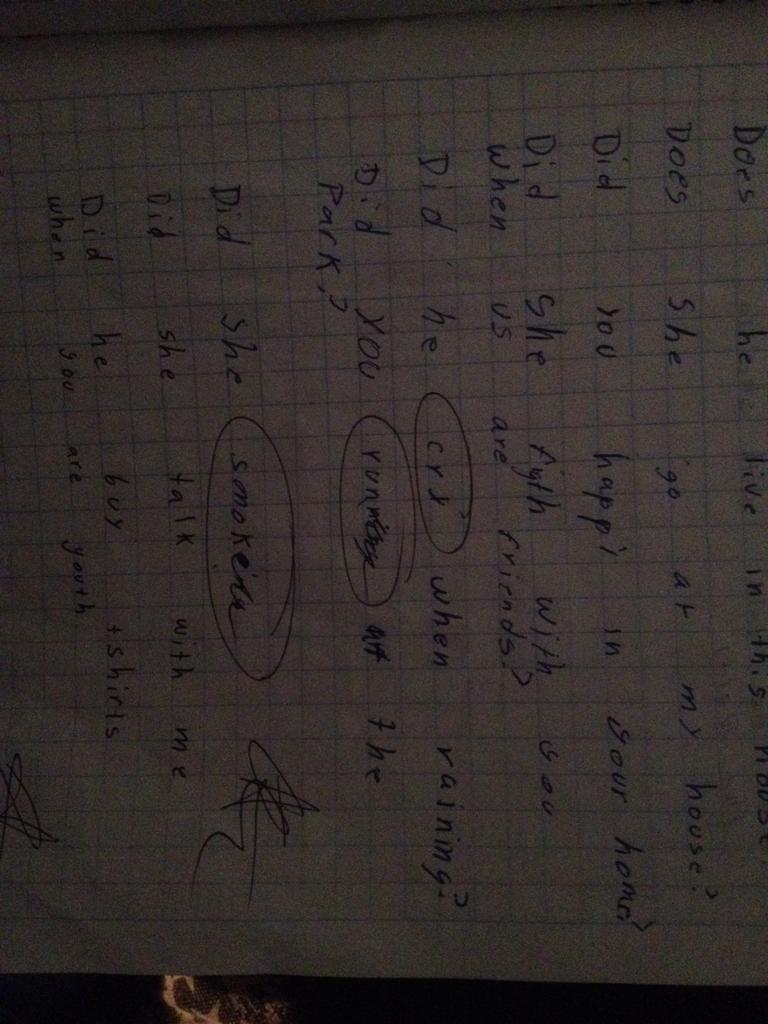 Does he live in this house
Does she go at my house?
Did you happi in your home?
Did she figth with you
when us are friends?
Did he cry when raining?
Did you run at the
Park?
Did she smoke
Did she talk with me
Did he buy tshirts
when you are youth